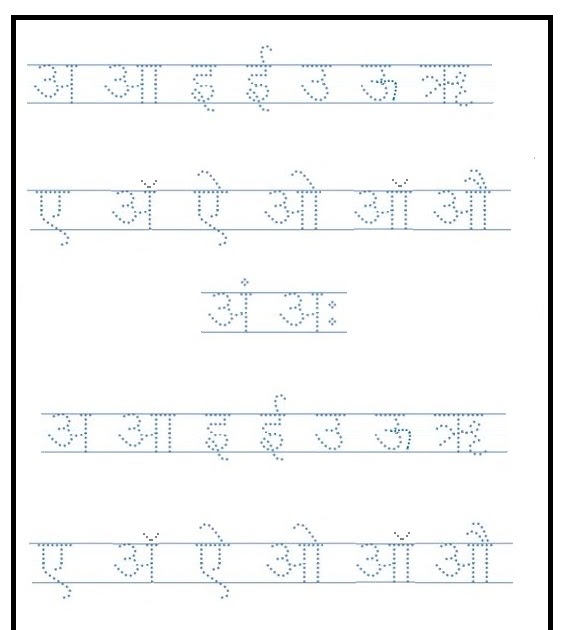 अ आ इ ई उ ऊ ऋ
ए अॅ ऐ ओ ऑ औ
अं अः
अ आ इ ई उ ऊ ऋ
ए अॅ ऐ ओ ऑ औ